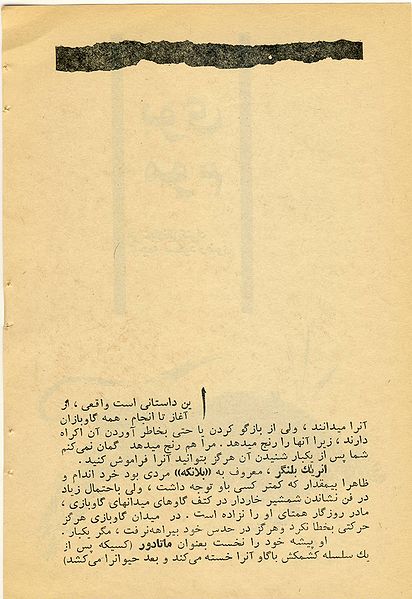 این داستانی است واقعی ، از
آغاز تا انجام . همه گاوبازان
آنرا میدانند ، ولی از بازگو کردن یا حتی بخاطر آوردن آن اکراه
دارند ، زیرا آنها را رنج میدهد . مرا هم رنج میدهد گمان نمی‌کنم
شما پس از یکبار شنیدن آن هرگز بتوانید آنرا فراموش کنید .
انریك بلنگر ، معروف به «بلانکه» مردی بود خرد اندام و
ظاهرا بیمقدار که کمتر کسی باو توجه داشت ، ولی باحتمال زیاد
در فن نشاندن شمشیر خاردار در کتف گاوهای میدانهای گاوبازی ،
مادر روزگار همتای او را نزاده است . در میدان گاوبازی هرگز
حرکتی بخطا نکرد وهرگز در حدس خود بیراهه‌نرفت ، مگر یکبار .
او پیشه خود را نخست بعنوان ماتادور (کسیکه پس از
یك سلسله کشمکش باگاو آنرا خسته می‌کند و بعد حیوانرا می‌کشد)